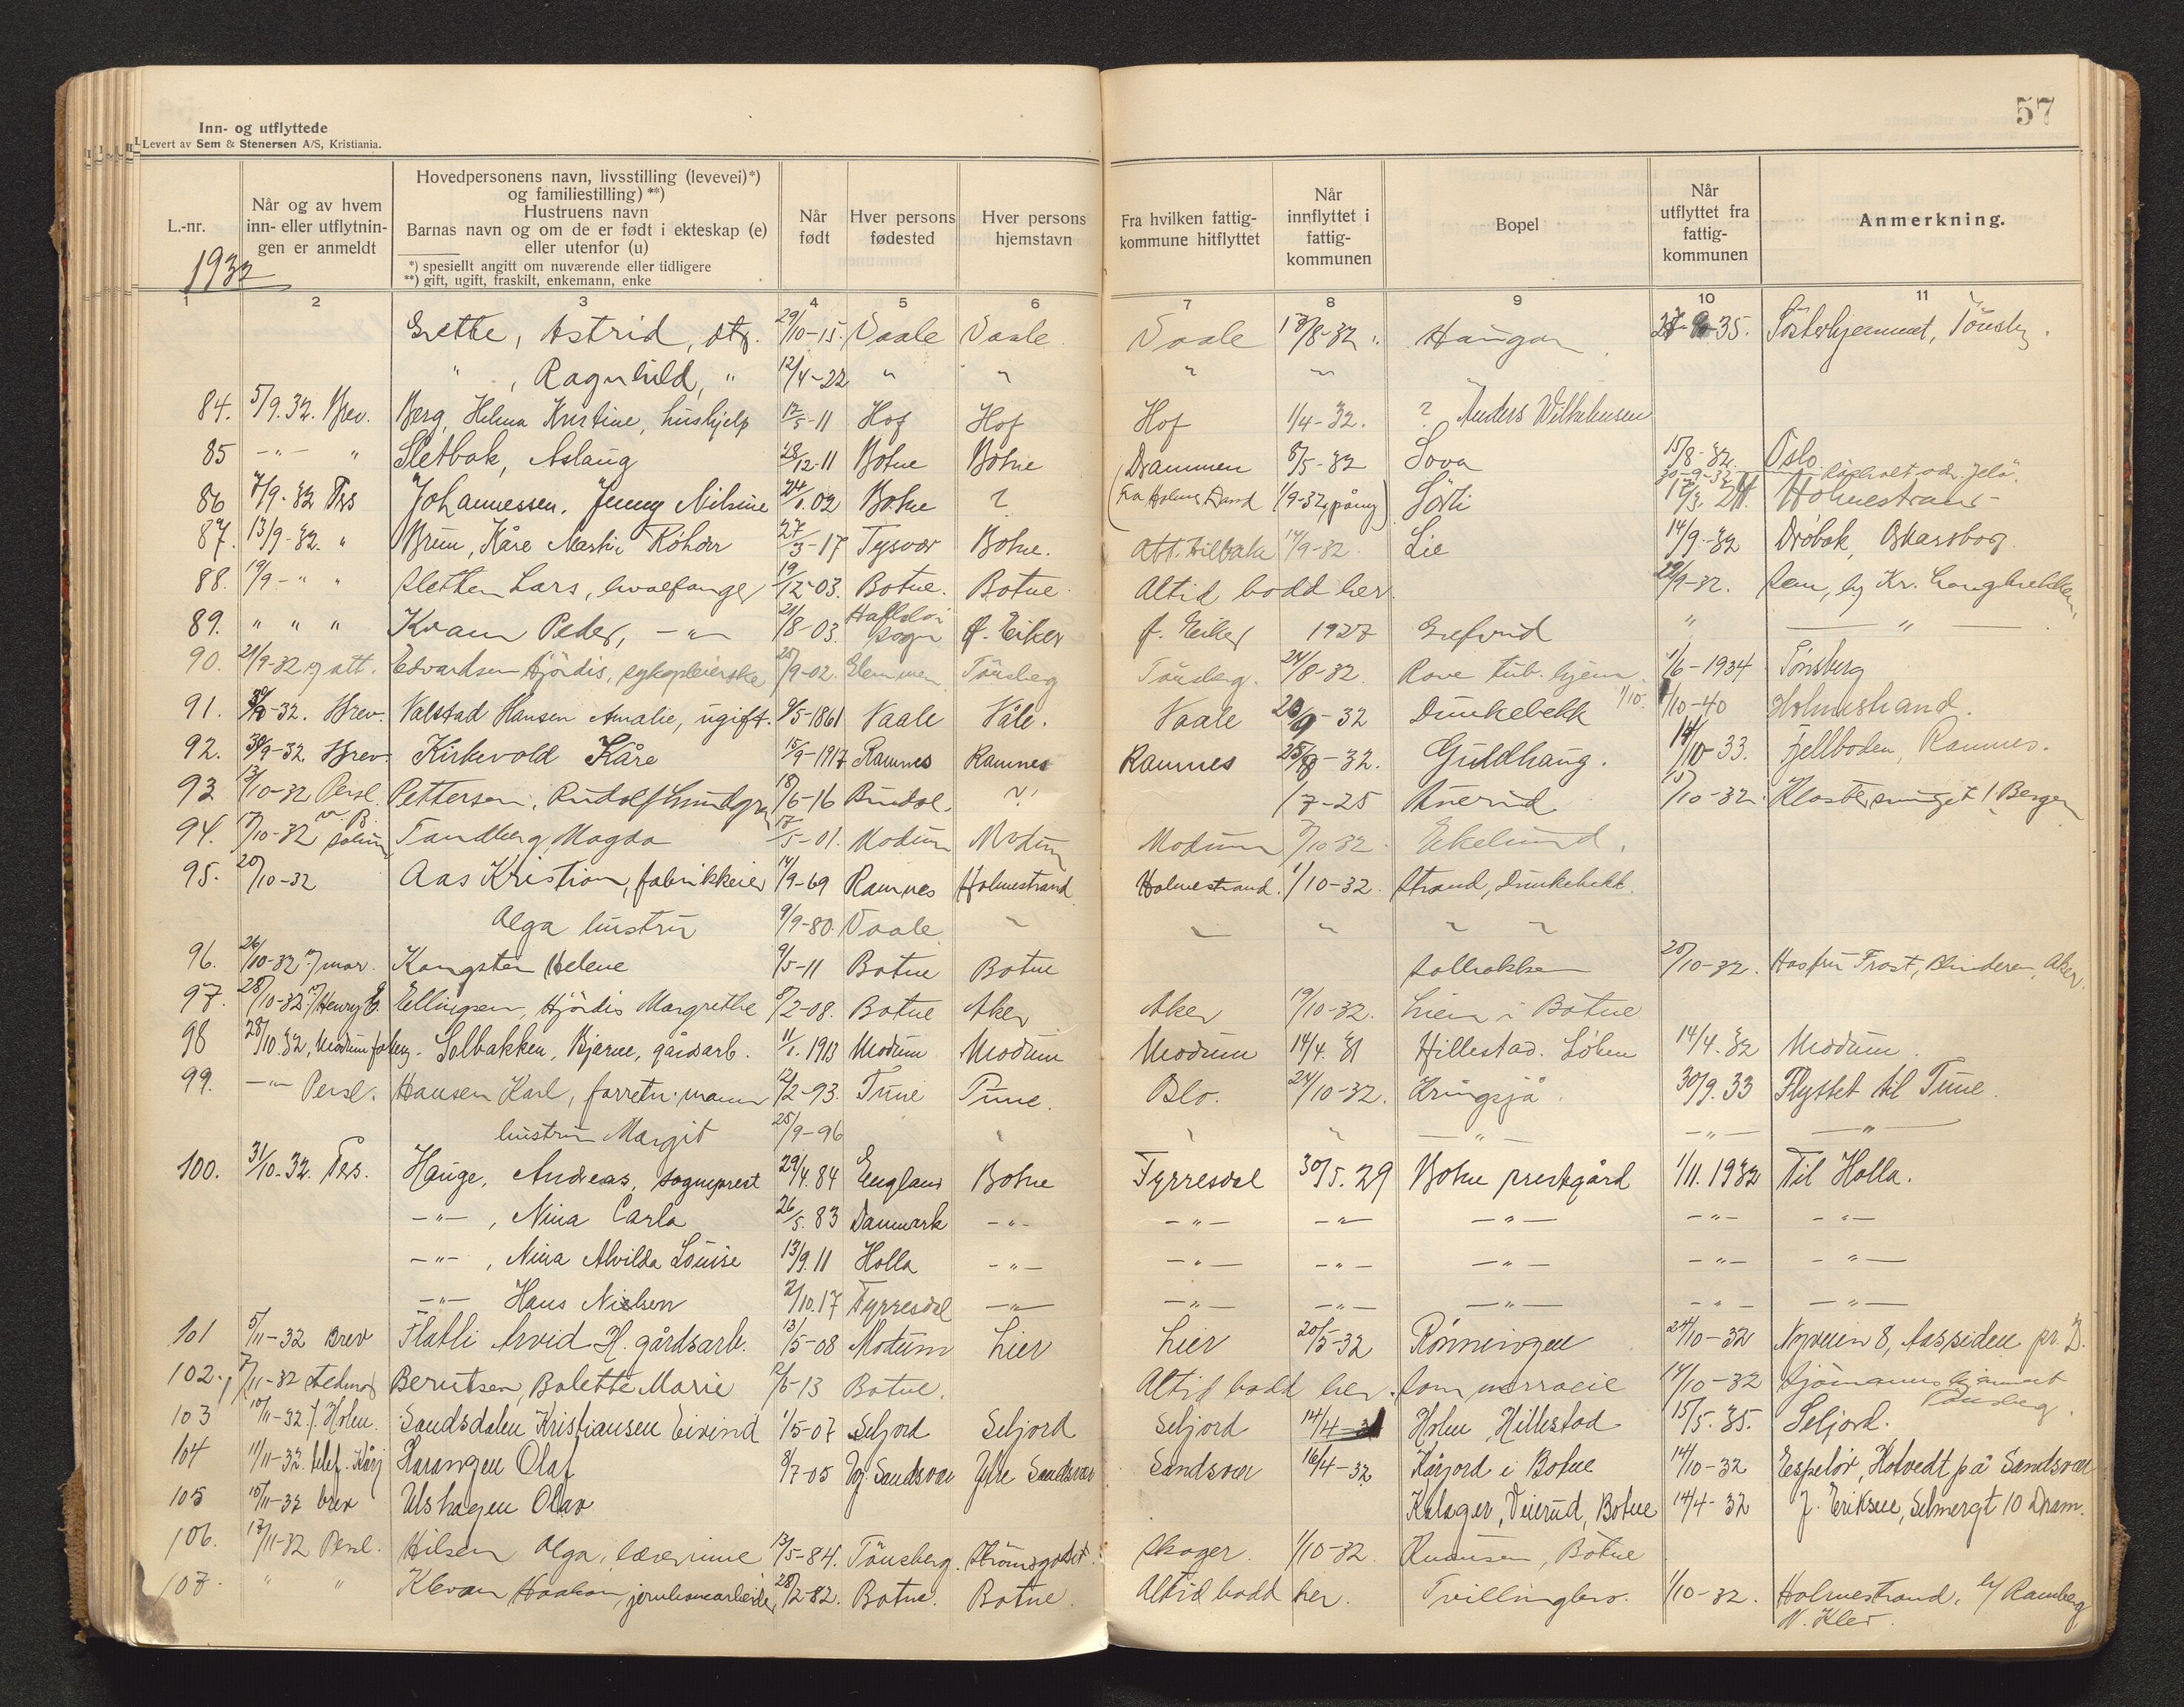 57
Inn- og utflyttede
Levert av Sem & Stenersen A/S, Kristiania.
L.-nr.
Når og av hvem inn- eller utflytnin-gen er anmeldt
Hovedpersonens navn, livsstilling (levevei)*)
og familiestilling) **)
Hustruens navn
Barnas navn og om de er født i ekteskap (e)
eller utenfor (u)
*) spesiellt angitt om nuværende eller tidligere
**) gift, ugift, fraskilt, enkemann, enke
Når født
Hver persons fødested
Hver persons hjemstavn
Fra hvilken fattig-kommune hitflyttet
Når innflyttet i fattig-kommunen
Bopel
Når utflyttet fra fattig-kommunen
Anmerkning.
1932
1 2 3 4 5 6 7 8 9 10 11
Grette, Astrid, dtr. 29/10-15. Vaale Vaale Vaale /8-32 Haugan 35. Tönsby.
" , Ragnhild, " 12/4-22 " " " "
84. 5/9.32. Brev. Berg, Helma Kristine, hushjelp 17/5-11 Hof Hof Hof 1/4-32. ? Anders Wilhelmsen
85 -"- " Sletbak, Aslaug 28/12-11 Botne Botne Drammen 8/5-32 Sova 15/8-32. Oslo
86 7/9-32 Prs Johannessen, Jenny Nilsine 24/1.02 Botne ? (Fra Holmestrand 1/9-32, ) Holmestrand
87. 13/9-32. " Brun, Kåre Martin 27/3-17 Tysvær Botne. Att. tilbake 14/9-32. Lie 14/9-32 Drøbak, Oskarsborg
88. 19/9-" " Sletten Lars, hvalfanger 19/12-03. Botne. Botne. Altid bodd her. 22/9-32. Sem,
89. " " " Kvam Peder, -"- 21/8-03. sogn ø. Eiker ø. Eiker 1927 Grefsrud " -"-
90. 21/9-32 att. Edvardsen Hjördis, sykepleierske 25/9-02. Glemmen Tönsberg Tönsberg. 24/8-32. Rove tub. hjem. 1/6-1934 Tönsberg
91. -32. Brev. Valstad Hansen Amalie, ugift. 9/5-1861 Vaale Våle. Vaale /9-32 Dunkebekk 1/10-40 Holmestrand.
92. 30/9-32. Brev. Kirkevold Kåre 15/9-1917 Ramnes Ramnes Ramnes -32. Guldhaug. 14/10-33. Fjellboden, Ramnes.
93 13/10-32 Persl. Pettersen, Rudolf 18/6-16 Bindal. ? /7-25 Anerud 15/10-32. Bergen
94. 17/10-32 Tandberg Magda 17/5-01. Modum Modum Modum /10-32. Ekelund.
95. 20/10-32 Aas Kristian, fabrikkeier 14/9-69 Ramnes Holmestrand Holmestrand. 1/10-32. Strand, Dunkebekk.
Olga hustru 9/9-80. Vaale " " " " "
96. 26/10-32 Kongsten Helene 9/5-11 Botne Botne Solbakken 20/10-32. Hos fru Frost, Blindern, Aker.
97. 28/10-32 Henry E. Ellingsen, Hjördis Margrethe 8/2-08. Botne Aker Aker 19/10-32. Lien i Botne
98 28/10.32, Modum Solbakken, Bjarne, gårdsarb. 11/1.1913 Modum Modum Modum 14/4.31 Hillestad. Löken 14/4.32 Modum.
99. -"- Persl. Hansen Karl, forretn.mann 12/2-93. Tune Tune. Oslo. 24/10-32. Kringsjå. 30/9.33 Flyttet til Tune.
hustru Margit 25/9-96 " " " -"- -"- -"-
100. 31/10.32. Prs. Hauge, Andreas, sogneprest 29/4.84 England Botne Fyrresdal 30/5.29 Botne prestgård 1/11.1932 Til Holla.
-"- , Nina Carla 26/5.83 Danmark -"- -"- -"- -"- -"- -"-
-"- , Nina Alvilda Louise 13/9.11 Holla -"- -"- -"- -"- -"- -"-
-"- Hans Nielsen 2/10.17 Fyrresdal -"- -"- -"- -"- -"- -"-
101 5/11-32 Brev Flatli Arvid H. gårdsarb. 13/5-08 Modum Lier Lier 20/5-32 Rönningen 24/10-32 Nyveien 8, Aassiden pr. D.
102. 7/11-32 Berntsen, Bolette Marie /6-13 Botne. Altid bodd her. 14/10-32 Sjömannshjemmet Tönsberg.
103 10/11-32. f. Holm. Sandsdalen Kristiansen Eivind 1/5-07 Seljord Seljord Seljord 14/4-31 Holm Hillestad 15/5.35. Seljord.
104 11/11-32. telef. Harangen Olaf 9/7-05 Sandsvær Ytre Sandsvær Sandsvær 16/4-32 Kårjord i Botne 14/10-32 Hotvedt på Sandsvær
105 15/11-32 brev Ulshagen Olav Kolager, Veierud, Botne 14/4-32 J. Eriksen, Selmergt 10 Dram.
106. 17/11-32 Persl. Hilsen Olga, lærerinne 13/5-84. Tönsberg. Strömsgodset. Skoger. 1/10-32. Knutsen, Botne
107. " " Klevan Haakon, jernbanearbeider 28/2-82. Botne. Botne. Altid bodd her. Tvillingbro. 1/10-32. Holmestrand, Ramberg,